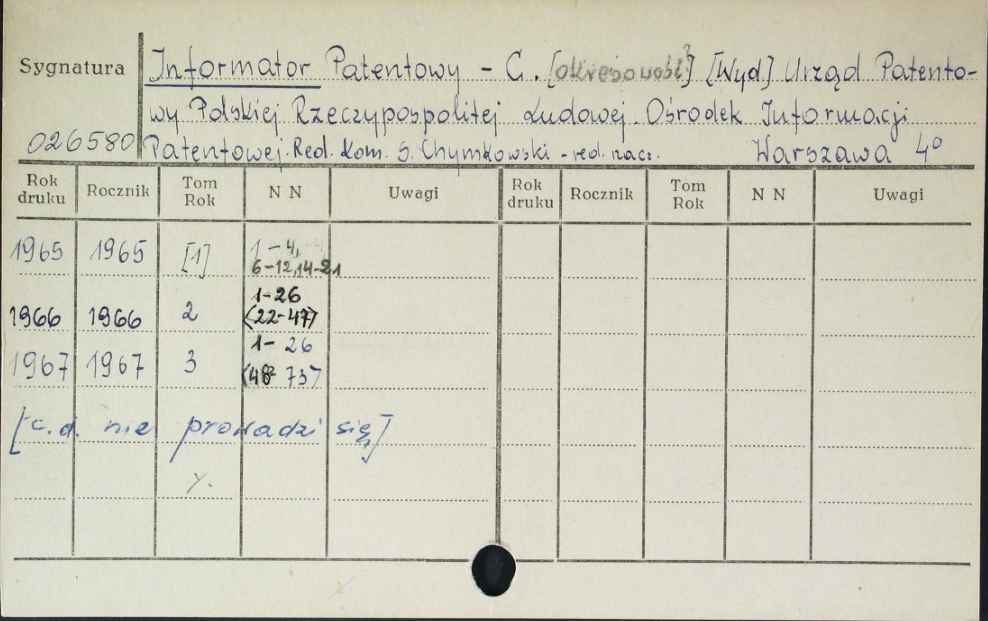 Sygnatura
Informator Patentowy - C. [okresowość?] [Wyd] Urząd Patento-
wy Polskiej Rzeczypospolitej Ludowej. Ośrodek Informacji
026580 Patentowej. Red. Kom. S. Chymkowski - red. nacz. Warszawa 4°
Rok druku Rocznik Tom Rok N N Uwagi Rok druku Rocznik Tom Rok N N Uwagi
1965 1965 [1] 1-4,
6-12,14-21
1-26
1966 1966 2 (22-47)
1- 26
1967 1967 3 (48- 73)
[c.d. nie prowadzi się]